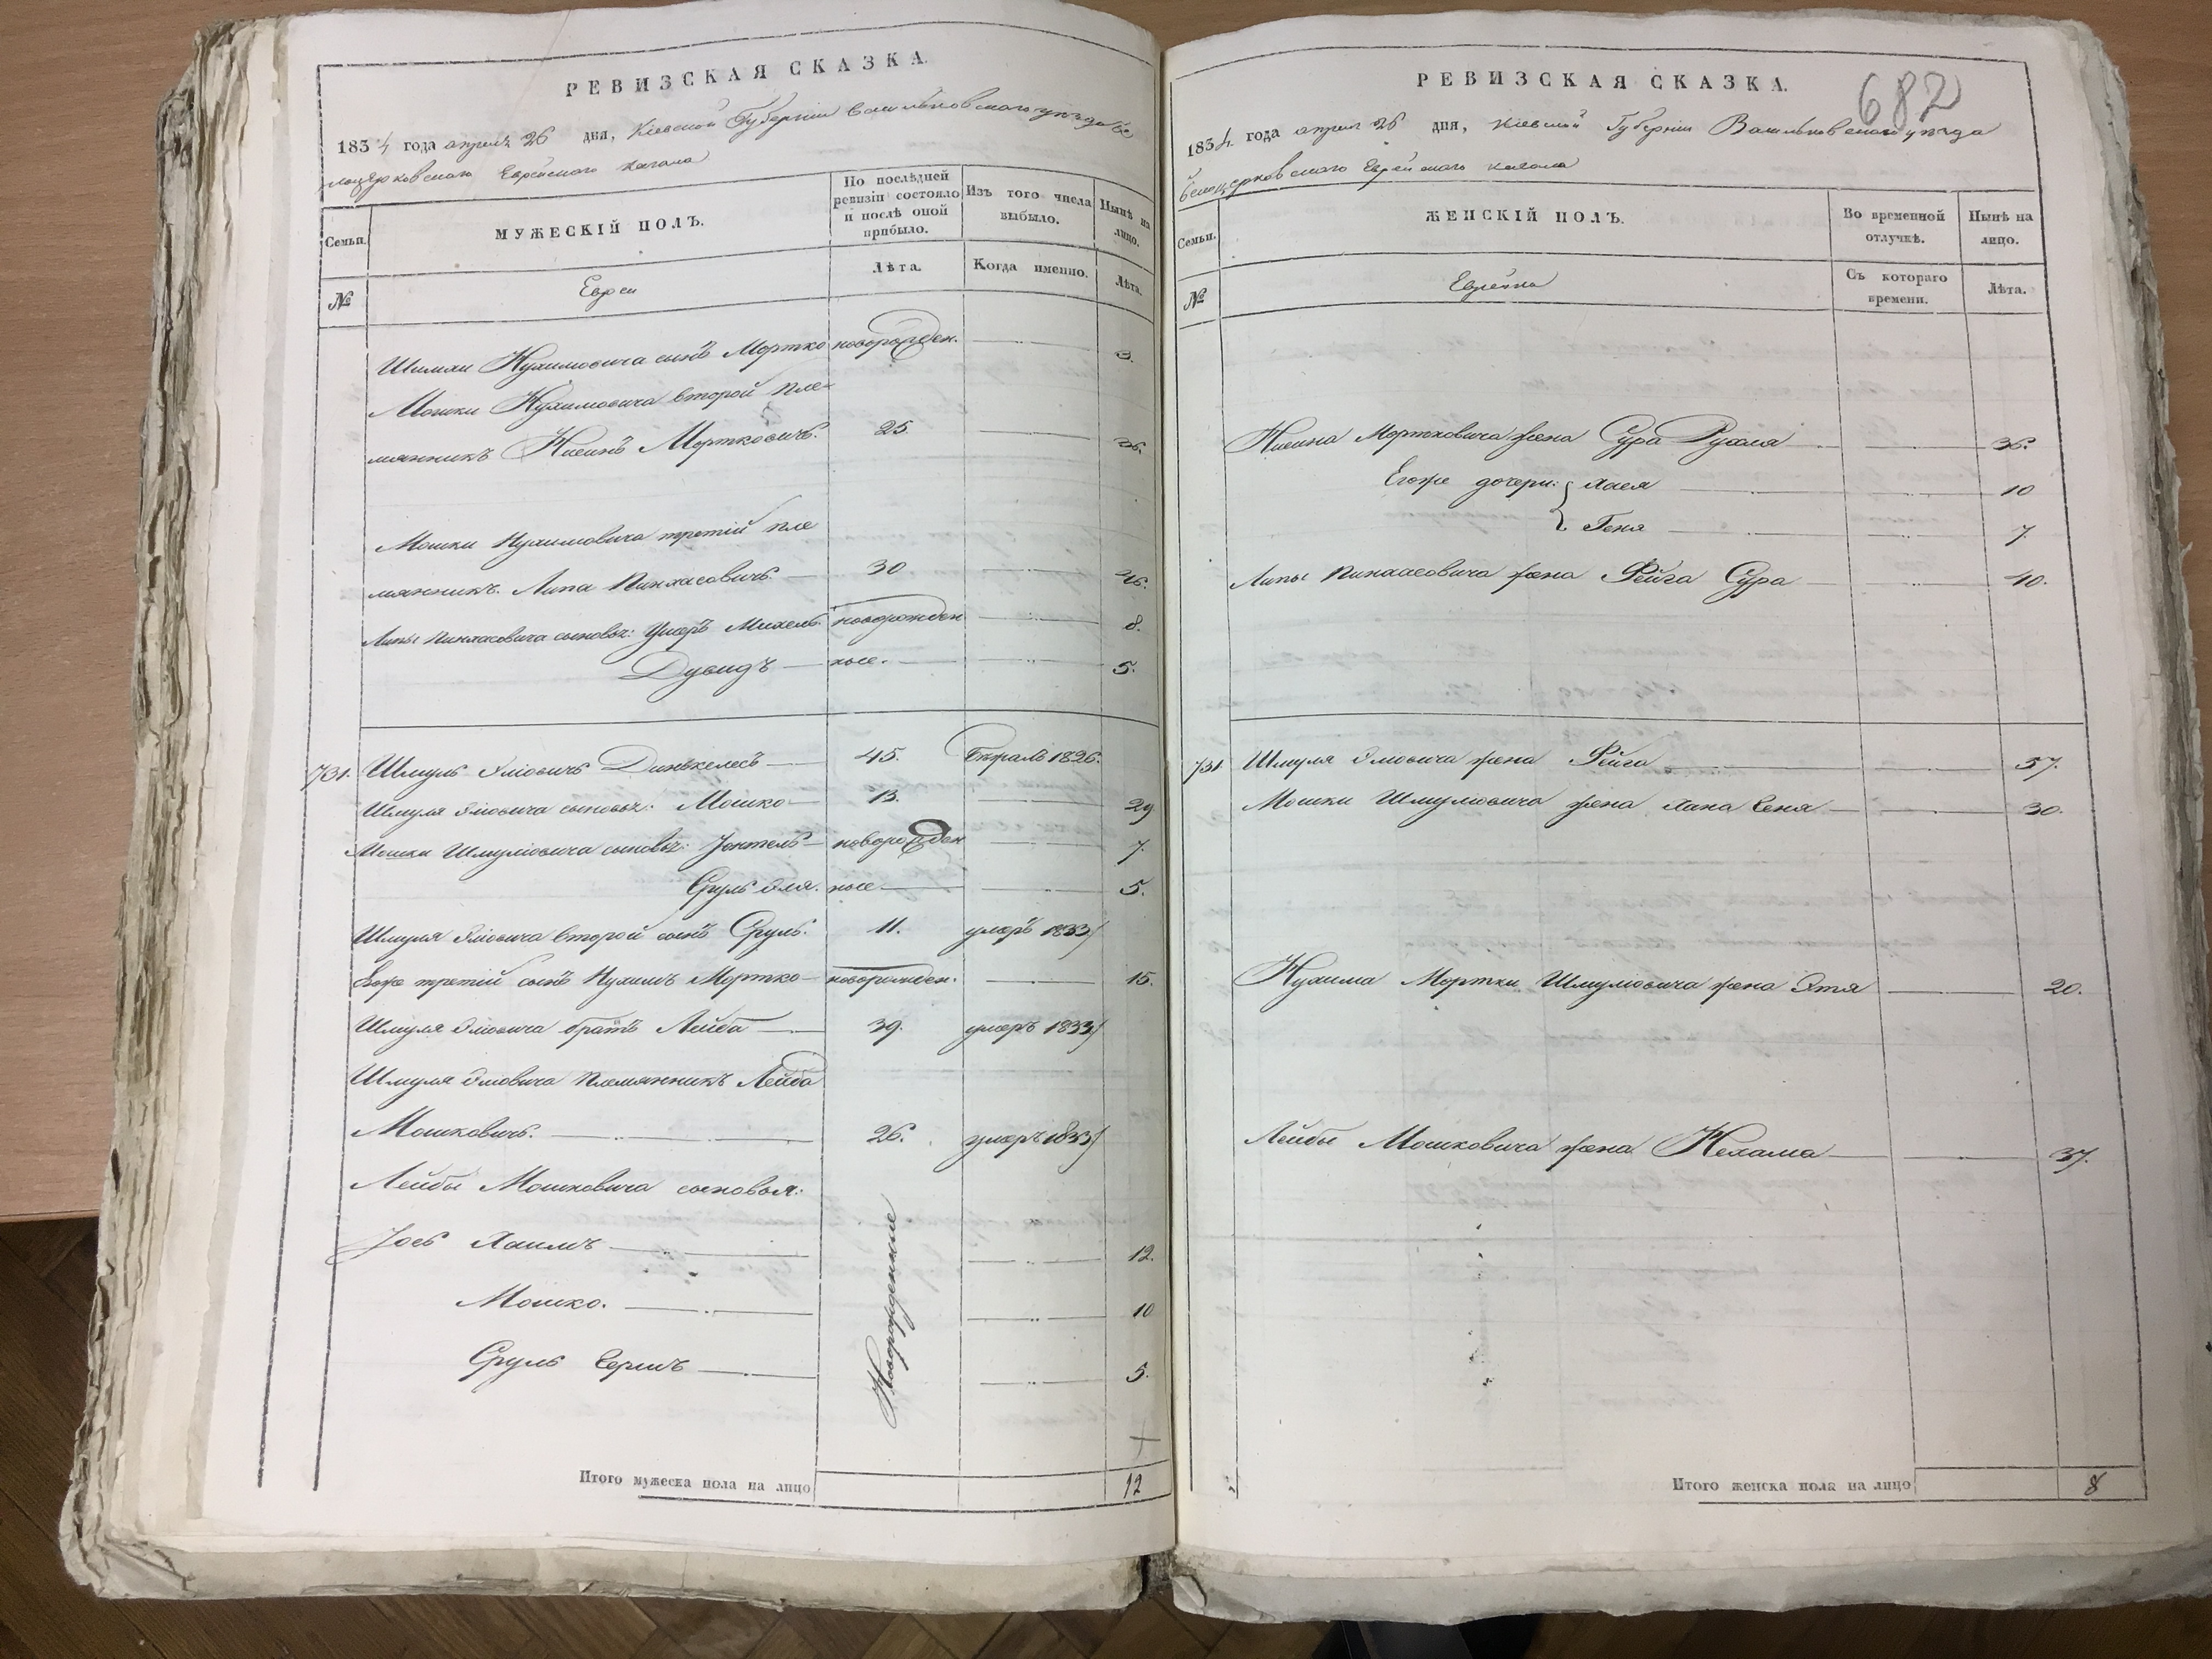 РЕВИЗСКАЯ СКАЗКА.
1834 года апреля 26 дня, Кіевской Губерніи Васильковского уезда Бе
лоцерковского Еврейского кагала
Семьи.
МУЖЕСКІЙ ПОЛЪ.
По послѣдней ревизіи состояло и послѣ оной прибыло.
Изъ того числа выбыло.
Нынѣ на лицо.
№
Евреи
Лѣта.
Когда именно.
Лѣта.
Шимхи Нухимовича сынъ Мортко новорожден. 3.
Мошки Нухимовича второй пле-
мянникъ Нисинъ Мортковичъ. 25. 36.
Мошки Нухимовича третій пле
мянникъ Липа Пинхасовичъ 30 46.
Липы Пинхасовича сыновья: Ушеръ Михель. новорожден 8.
Дувидъ тоже. 5.
731. Шмуль Эліовичъ Динкелесъ 45. 1826.
Шмуля Эліовича сыновья: Мошко 13. 29
Мошки Шмуліовича сыновья: Іонтель новорожден 7.
Сруль Эля. тоже 5.
Шмуля Эліовича второй сынъ Сруль. 11. умеръ 1833
Егоже третій сынъ Нухимъ Мортко новорожден. 15.
Шмуля Эліовича братъ Лейба 39. умеръ 1833
Шмуля Эліовича племянникъ Лейба
Мошковичъ. 26. умеръ 1833
Лейбы Мошковича сыновья:
Іось Хаимъ 12.
Мошко. 10
Сруль Бершъ 5.
Новорожденные
Итого мужеска пола на лицо 12
РЕВИЗСКАЯ СКАЗКА.
682
1834 года апреля 26 дня, Кіевской Губерніи Васильковского уезда
Белоцерковского Еврейского кагала
Семьи.
ЖЕНСКІЙ ПОЛЪ.
Во временной отлучкѣ.
Нынѣ на лицо.
№
Еврейки
Съ котораго времени.
Лѣта.
Нисина Мортковича жена Сура Рухля 36.
Егоже дочери: Хася 10
Геня 7.
Липы Пинхасовича жена Фейга Сура 40.
731 Шмуля Эліовича жена Фейга 57.
Мошки Шмуліовича жена Хана Беня 30.
Нухима Мортки Шмуліовича жена Этя 20.
Лейбы Мошковича жена Нехама 37.
Итого женска пола на лицо 8